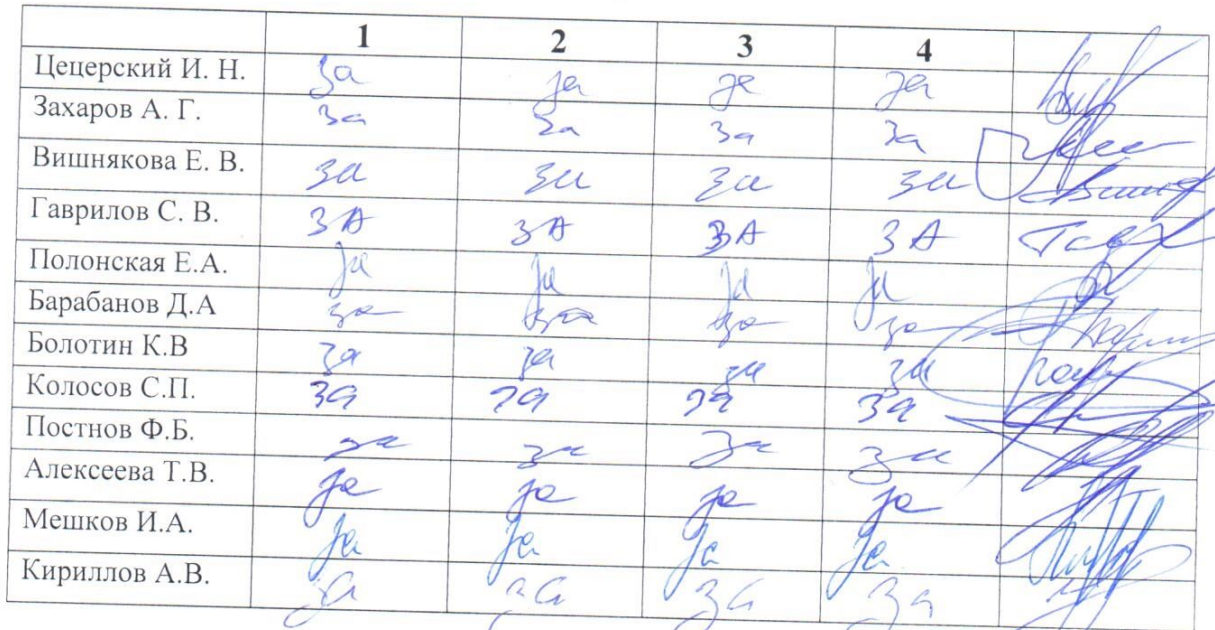 1 2 3 4
Цецерский И. Н. за за за за
Захаров А. Г. за за за за
Вишнякова Е. В. за за за за
Гаврилов С. В. ЗА ЗА ЗА ЗА
Полонская Е.А. за за за за
Барабанов Д.А за за за за
Болотин К.В за за за за
Колосов С.П. за за за за
Постнов Ф.Б. за за за за
Алексеева Т.В. за за за за
Мешков И.А. за за за за
Кириллов А.В. за за за за